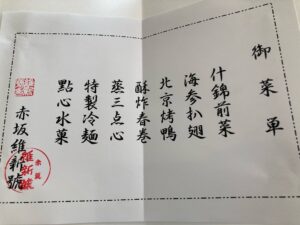 御菜単
什錦前菜
海参扒翅
北京烤鴨
酥炸春巻
蒸三点心
特製冷麺
點心水菓
赤坂維新號
赤坂
維新號